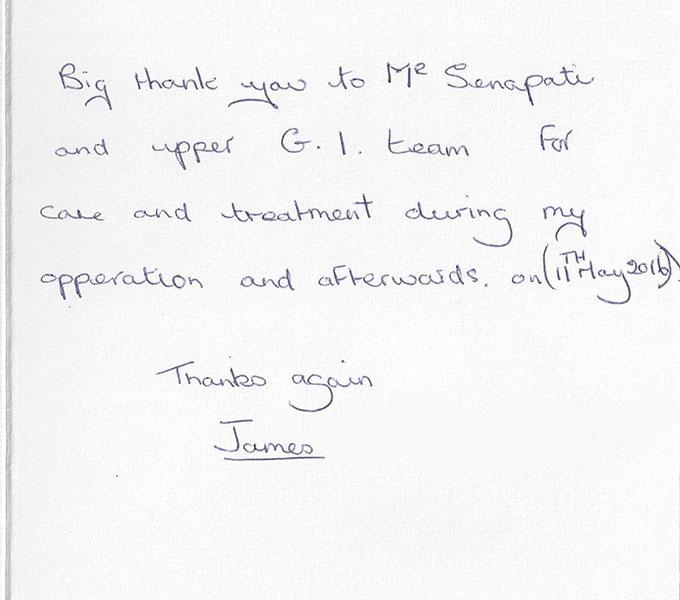 Big thank you to Mr Senapati
and upper G.I. team for
care and treatment during my
opperation and afterwards. on (11TH May 2016)
Thanks again
James